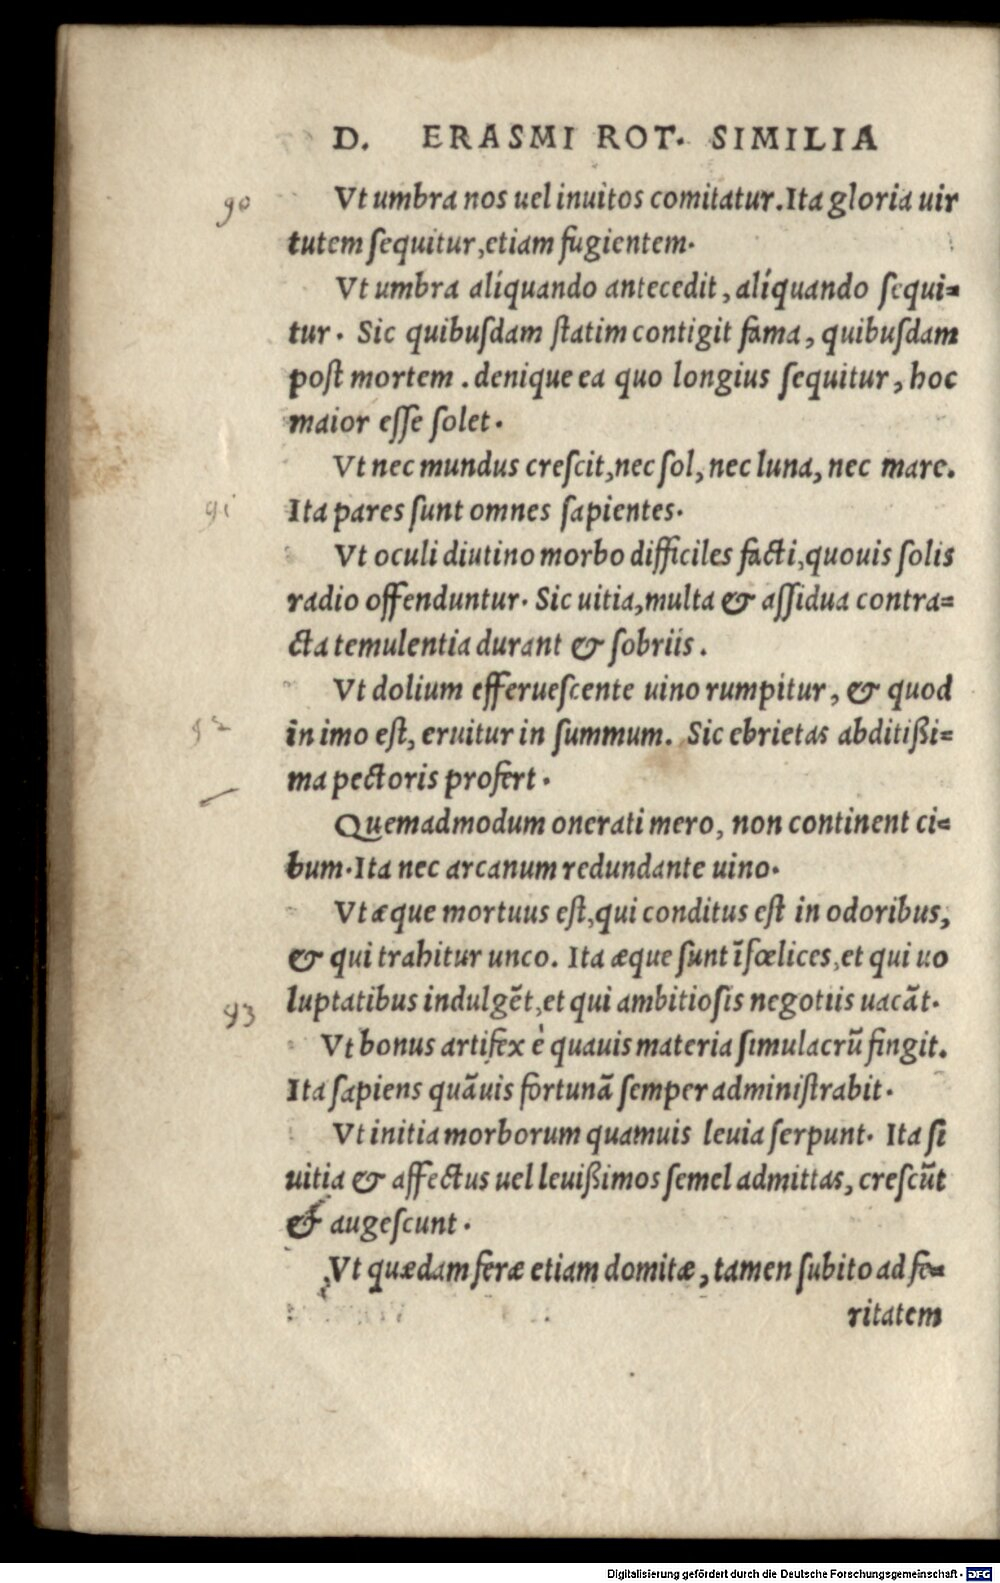 D. ERASMI ROT. SIMILIA
90
Vt umbra nos uel inuitos comitatur. Ita gloria uir
tutem ſequitur, etiam fugientem.
Vt umbra alíquando antecedit, alíquando ſequi=
tur. Sic quibuſdam ſtatim contigit fama, quibuſdam
poſt mortem. denique ea quo longius ſequitur, hoc
maior eſſe ſolet.
Vt nec mundus creſcit, nec ſol, nec luna, nec mare.
91
Ita pares ſunt omnes ſapientes.
Vt oculi diutino morbo difficiles facti, quouis ſolis
radio offenduntur. Sic uitia, multa & aſſidua contra=
cta temulentia durant & ſobriis.
Vt dolium efferueſcente uino rumpitur, & quod
92
in imo eſt, eruitur in ſummum. Sic ebrietas abditißi=
ma pectoris profert.
Quemadmodum onerati mero, non continent ci=
bum. Ita nec arcanum redundante uino.
Vt æque mortuus eſt, qui conditus eſt in odoribus,
& qui trahitur unco. Ita æque ſunt ĩfœlices, et qui uo
93
luptatibus indulgẽt, et qui ambitioſis negotiis uacãt.
Vt bonus artifex è quauis materia ſimulacrũ fingit.
Ita ſapiens quãuis fortunã ſemper adminiſtrabit.
Vt initia morborum quamuis leuia ſerpunt. Ita ſi
uitia & affectus uel leuißimos ſemel admittas, creſcũt
& augeſcunt.
Vt quædam feræ etiam domitæ, tamen ſubito ad fe=
ritatem
Digitalisierung gefördert durch die Deutsche Forschungsgemeinschaft - DFG